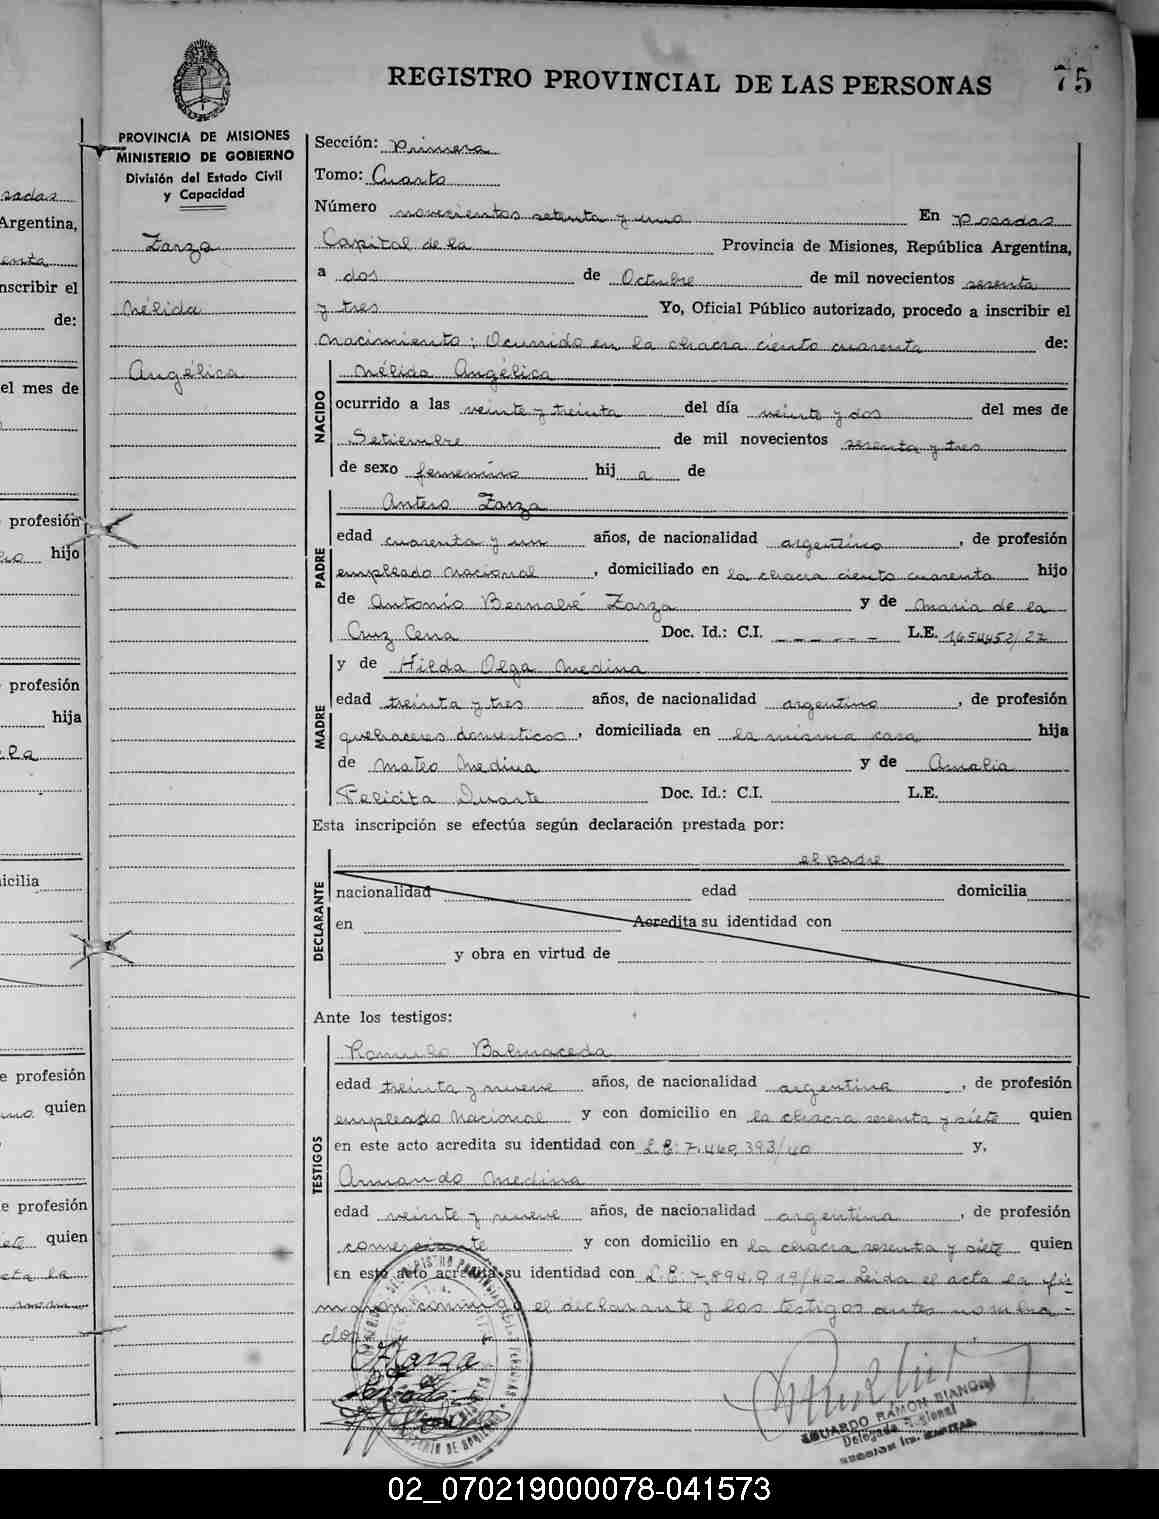 REGISTRO PROVINCIAL DE LAS PERSONAS
75
PROVINCIA DE MISIONES
MINISTERIO DE GOBIERNO
División del Estado Civil
y Capacidad
Zarza
Nélida
Angélica
Sección: Primera
Tomo: Cuarto
Número novecientos setenta y uno En Posadas
Capital de la Provincia de Misiones, República Argentina,
a dos de Octubre de mil novecientos sesenta
y tres Yo, Oficial Público autorizado, procedo a inscribir el
Nacimiento: Ocurrido en la chacra ciento cuarenta de:
NACIDO
Nélida Angélica
ocurrido a las veinte y treinta del día veinte y dos del mes de
Setiembre de mil novecientos sesenta y tres
de sexo femenino hij a de
PADRE
Antero Zarza
edad cuarenta y un años, de nacionalidad argentino, de profesión
empleado nacional, domiciliado en la chacra ciento cuarenta hijo
de Antonio Bernabé Zarza y de Maria de la
Cruz Cena Doc. Id.: C.I. _ _ _ _ _ _ L.E. 1,654452/27
MADRE
y de Hilda Olga Medina
edad treinta y tres años, de nacionalidad argentina, de profesión
quehaceres domesticos, domiciliada en la misma casa hija
de Mateo Medina y de Amalia
Felicita Duarte Doc. Id.: C.I. L.E.
Esta inscripción se efectúa según declaración prestada por:
DECLARANTE
el padre
nacionalidad edad domicilia
en Acredita su identidad con
y obra en virtud de
Ante los testigos:
TESTIGOS
Romulo Balmaceda
edad treinta y nueve años, de nacionalidad argentina, de profesión
empleado Nacional y con domicilio en la chacra sesenta y siete quien
en este acto acredita su identidad con L.E: 7.460,393/40 y,
Armando Medina
edad veinte y nueve años, de nacionalidad argentina, de profesión
comerciante y con domicilio en la chacra sesenta y siete quien
en este acto acredita su identidad con L.E: 7,894,919/40. Leida el acta la fir-
maron conmigo el declarante y los testigos antes nombra-
dos
AZarza
EDUARDO RAMON BIANCHI
Delegado Regional
02_070219000078-041573